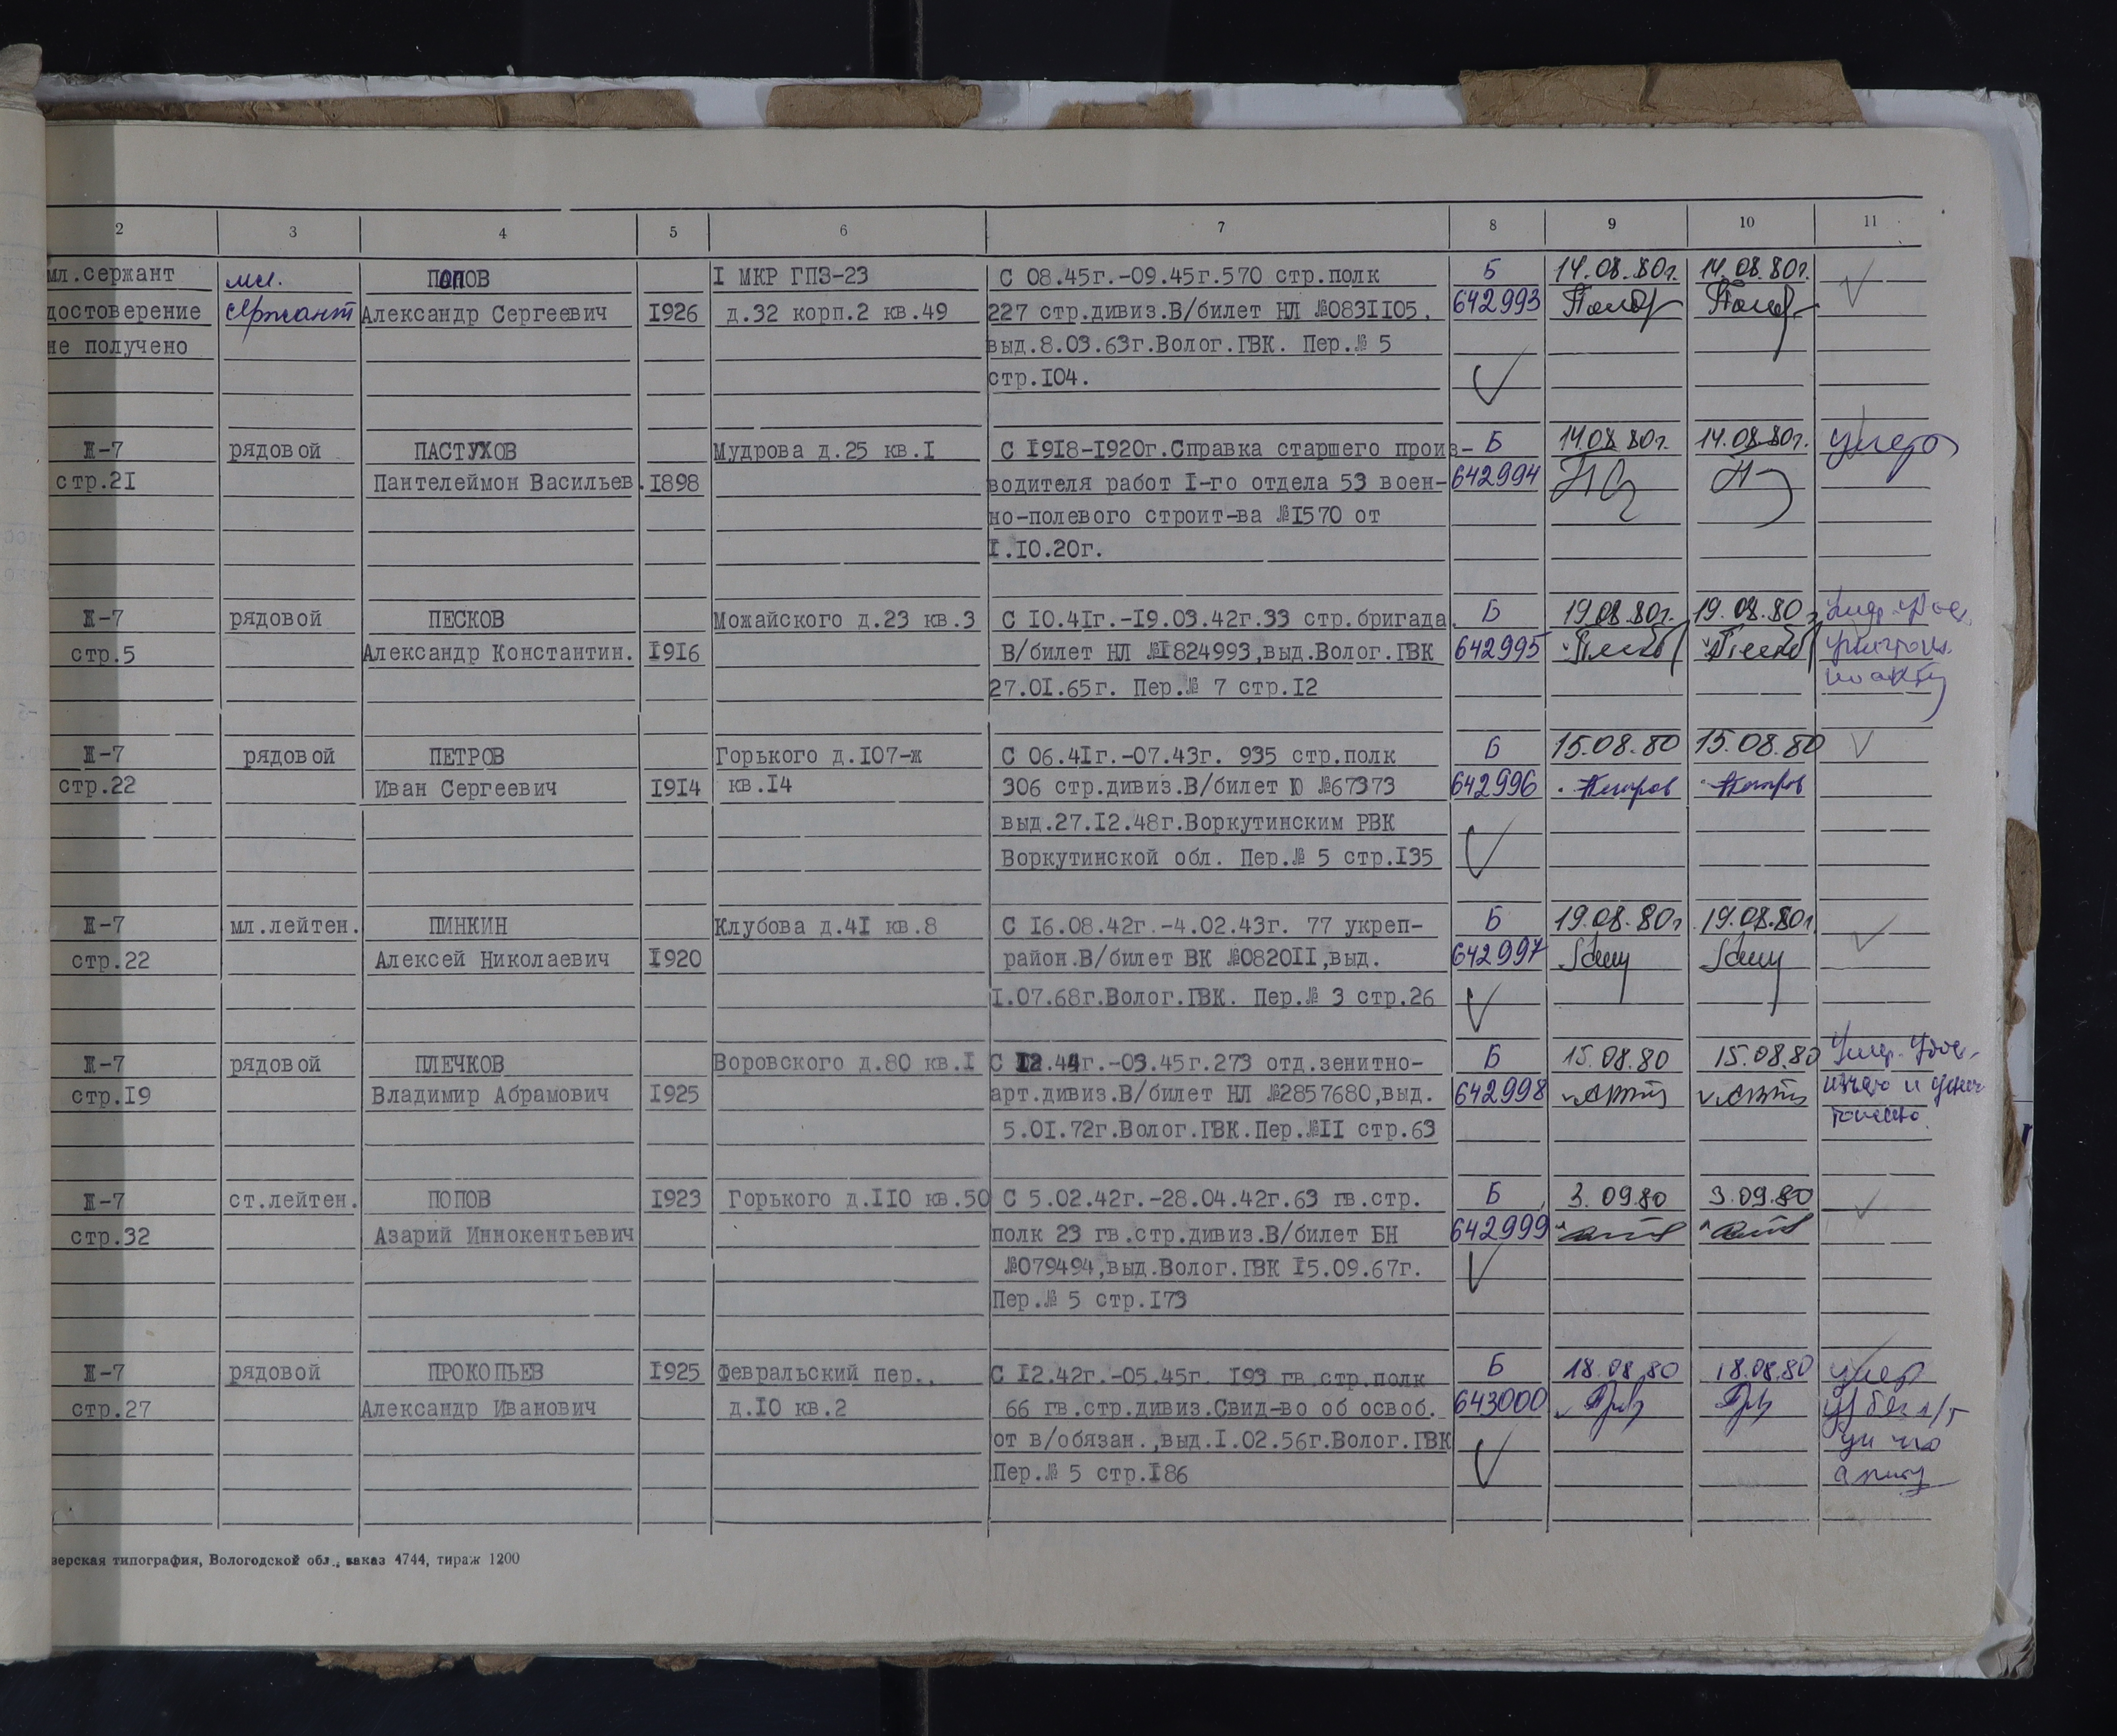 2 3 4 5 6 7 8 9 10 11
мл.сержант мл. ПОПОВ I МКР ГПЗ-23 С 08.45г.-09.45г.570 стр.полк Б 14.08.80г. 14.08.80г.
достоверение сержант Александр Сергеевич 1926 д.32 корп.2 кв.49 227 стр.дивиз.В/билет НЛ №0831105, 642993
не получено выд.8.03.63г.Волог.ГВК. Пер.№ 5
стр.104.
II-7 рядовой ПАСТУХОВ Мудрова д.25 кв.1 С 1918-1920г.Справка старшего произ- Б 14.08.80г. 14.08.80г. умер
стр.21 Пантелеймон Васильев. 1898 водителя работ I-го отдела 53 воен- 642994
но-полевого строит-ва №1570 от
1.10.20г.
II-7 рядовой ПЕСКОВ Можайского д.23 кв.3 С 10.41г.-19.03.42г.33 стр.бригада. Б 19.08.80г. 19.08.80г
стр.5 Александр Константин. 1916 В/билет НЛ №1824993,выд.Волог.ГВК 642995
27.01.65г. Пер.№ 7 стр.12 по акту
II-7 рядовой ПЕТРОВ Горького д.107-ж С 06.41г.-07.43г. 935 стр.полк Б 15.08.80 15.08.80
стр.22 Иван Сергеевич 1914 кв.14 306 стр.дивиз.В/билет Ю №67373 642996 Петров Петров
выд.27.12.48г.Воркутинским РВК
Воркутинской обл. Пер.№ 5 стр.135
II-7 мл.лейтен. ПИНКИН Клубова д.41 кв.8 С 16.08.42г.-4.02.43г. 77 укреп- Б 19.08.80г 19.08.80г.
стр.22 Алексей Николаевич 1920 район.В/билет ВК №082011,выд. 642997
1.07.68г.Волог.ГВК. Пер.№ 3 стр.26
II-7 рядовой ПЛЕЧКОВ Воровского д.80 кв.1 С 12.44г.-03.45г.273 отд.зенитно- Б 15.08.80 15.08.80
стр.19 Владимир Абрамович 1925 арт.дивиз.В/билет НЛ №2857680,выд. 642998
5.01.72г.Волог.ГВК.Пер.№11 стр.63
II-7 ст.лейтен. ПОПОВ 1923 Горького д.110 кв.50 С 5.02.42г.-28.04.42г.63 гв.стр. Б 3.09.80 3.09.80
стр.32 Азарий Иннокентьевич полк 23 гв.стр.дивиз.В/билет БН 642999
№079494,выд.Волог.ГВК 15.09.67г.
Пер.№ 5 стр.173
II-7 рядовой ПРОКОПЬЕВ 1925 Февральский пер., С 12.42г.-05.45г. 193 гв.стр.полк Б 18.08.80 18.08.80 умер
стр.27 Александр Иванович д.10 кв.2 66 гв.стр.дивиз.Свид-во об освоб. 643000
от в/обязан.,выд.1.02.56г.Волог.ГВК
Пер.№ 5 стр.186
зерская типография, Вологодской обл., заказ 4744, тираж 1200